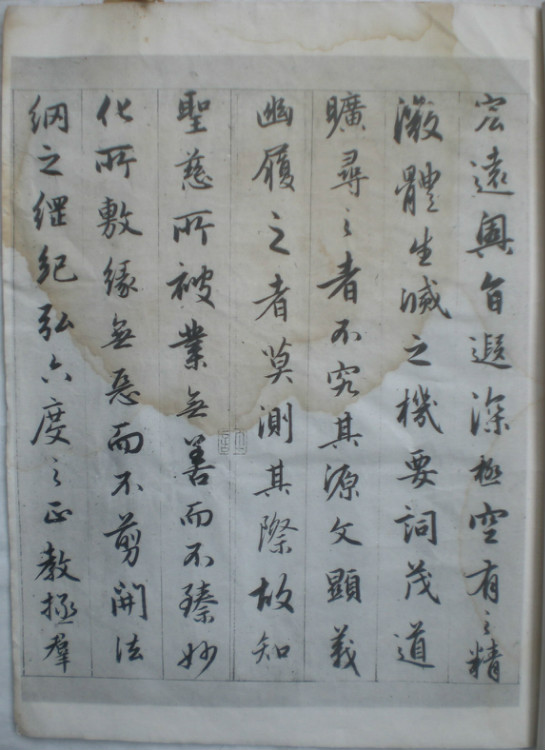 宏遠奧旨遐深極空有之精
微體生滅之機要詞茂道
曠尋之者不究其源文顯義
幽履之者莫測其際故知
聖慈所被業無善而不臻妙
化所敷緣無惡而不剪開法
網之綱紀弘六度之正教拯羣